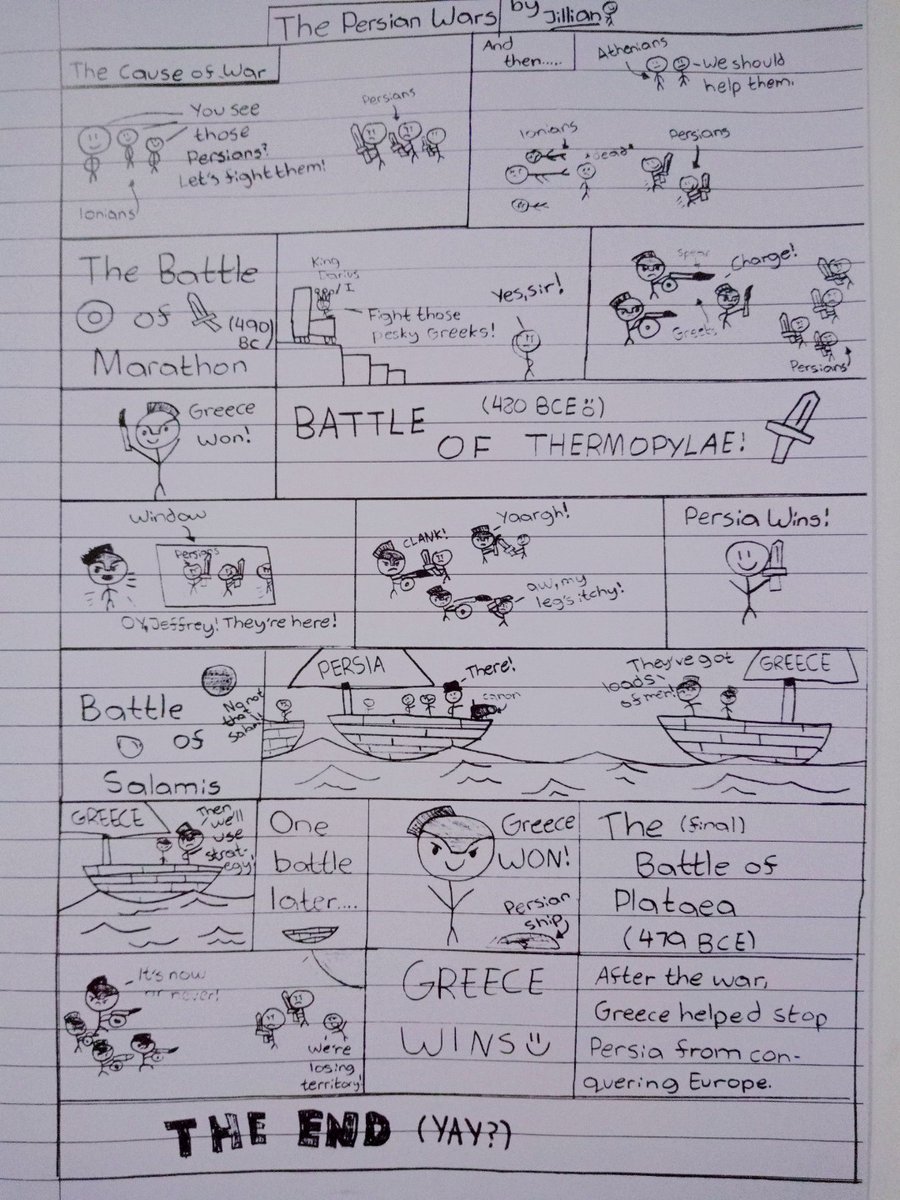 The Persian Wars
by Jillian
The Cause of War
You see
those
Persians?
Let's fight them!
Persians
Ionians
And
then.....
Athenians
We should
help them.
Ionians
*dead*
Persians
The Battle
of (490)
BC
Marathon
King
Darius
I
Fight those
pesky Greeks!
Yes, sir!
Spear
Charge!
Greeks
Persians
Greece
Won!
BATTLE (480 BCE)
OF THERMOPYLAE!
Window
Persians
Oy, Jeffrey! They're here!
CLANK!
Yaargh!
aw, my
leg's itchy!
Persia Wins!
Battle
of
Salamis
No, not
that
PERSIA
There!
canon
They've got
loads
of men!
GREECE
GREECE
Then
we'll
use
strat-
egy!
One
battle
later....
Greece
WON!
Persian
ship
The (final)
Battle of
Plataea
(479 BCE)
It's now
or never!
We're
losing
territory!
GREECE
WINS
After the war,
Greece helped stop
Persia from con-
quering Europe.
THE END (YAY?)